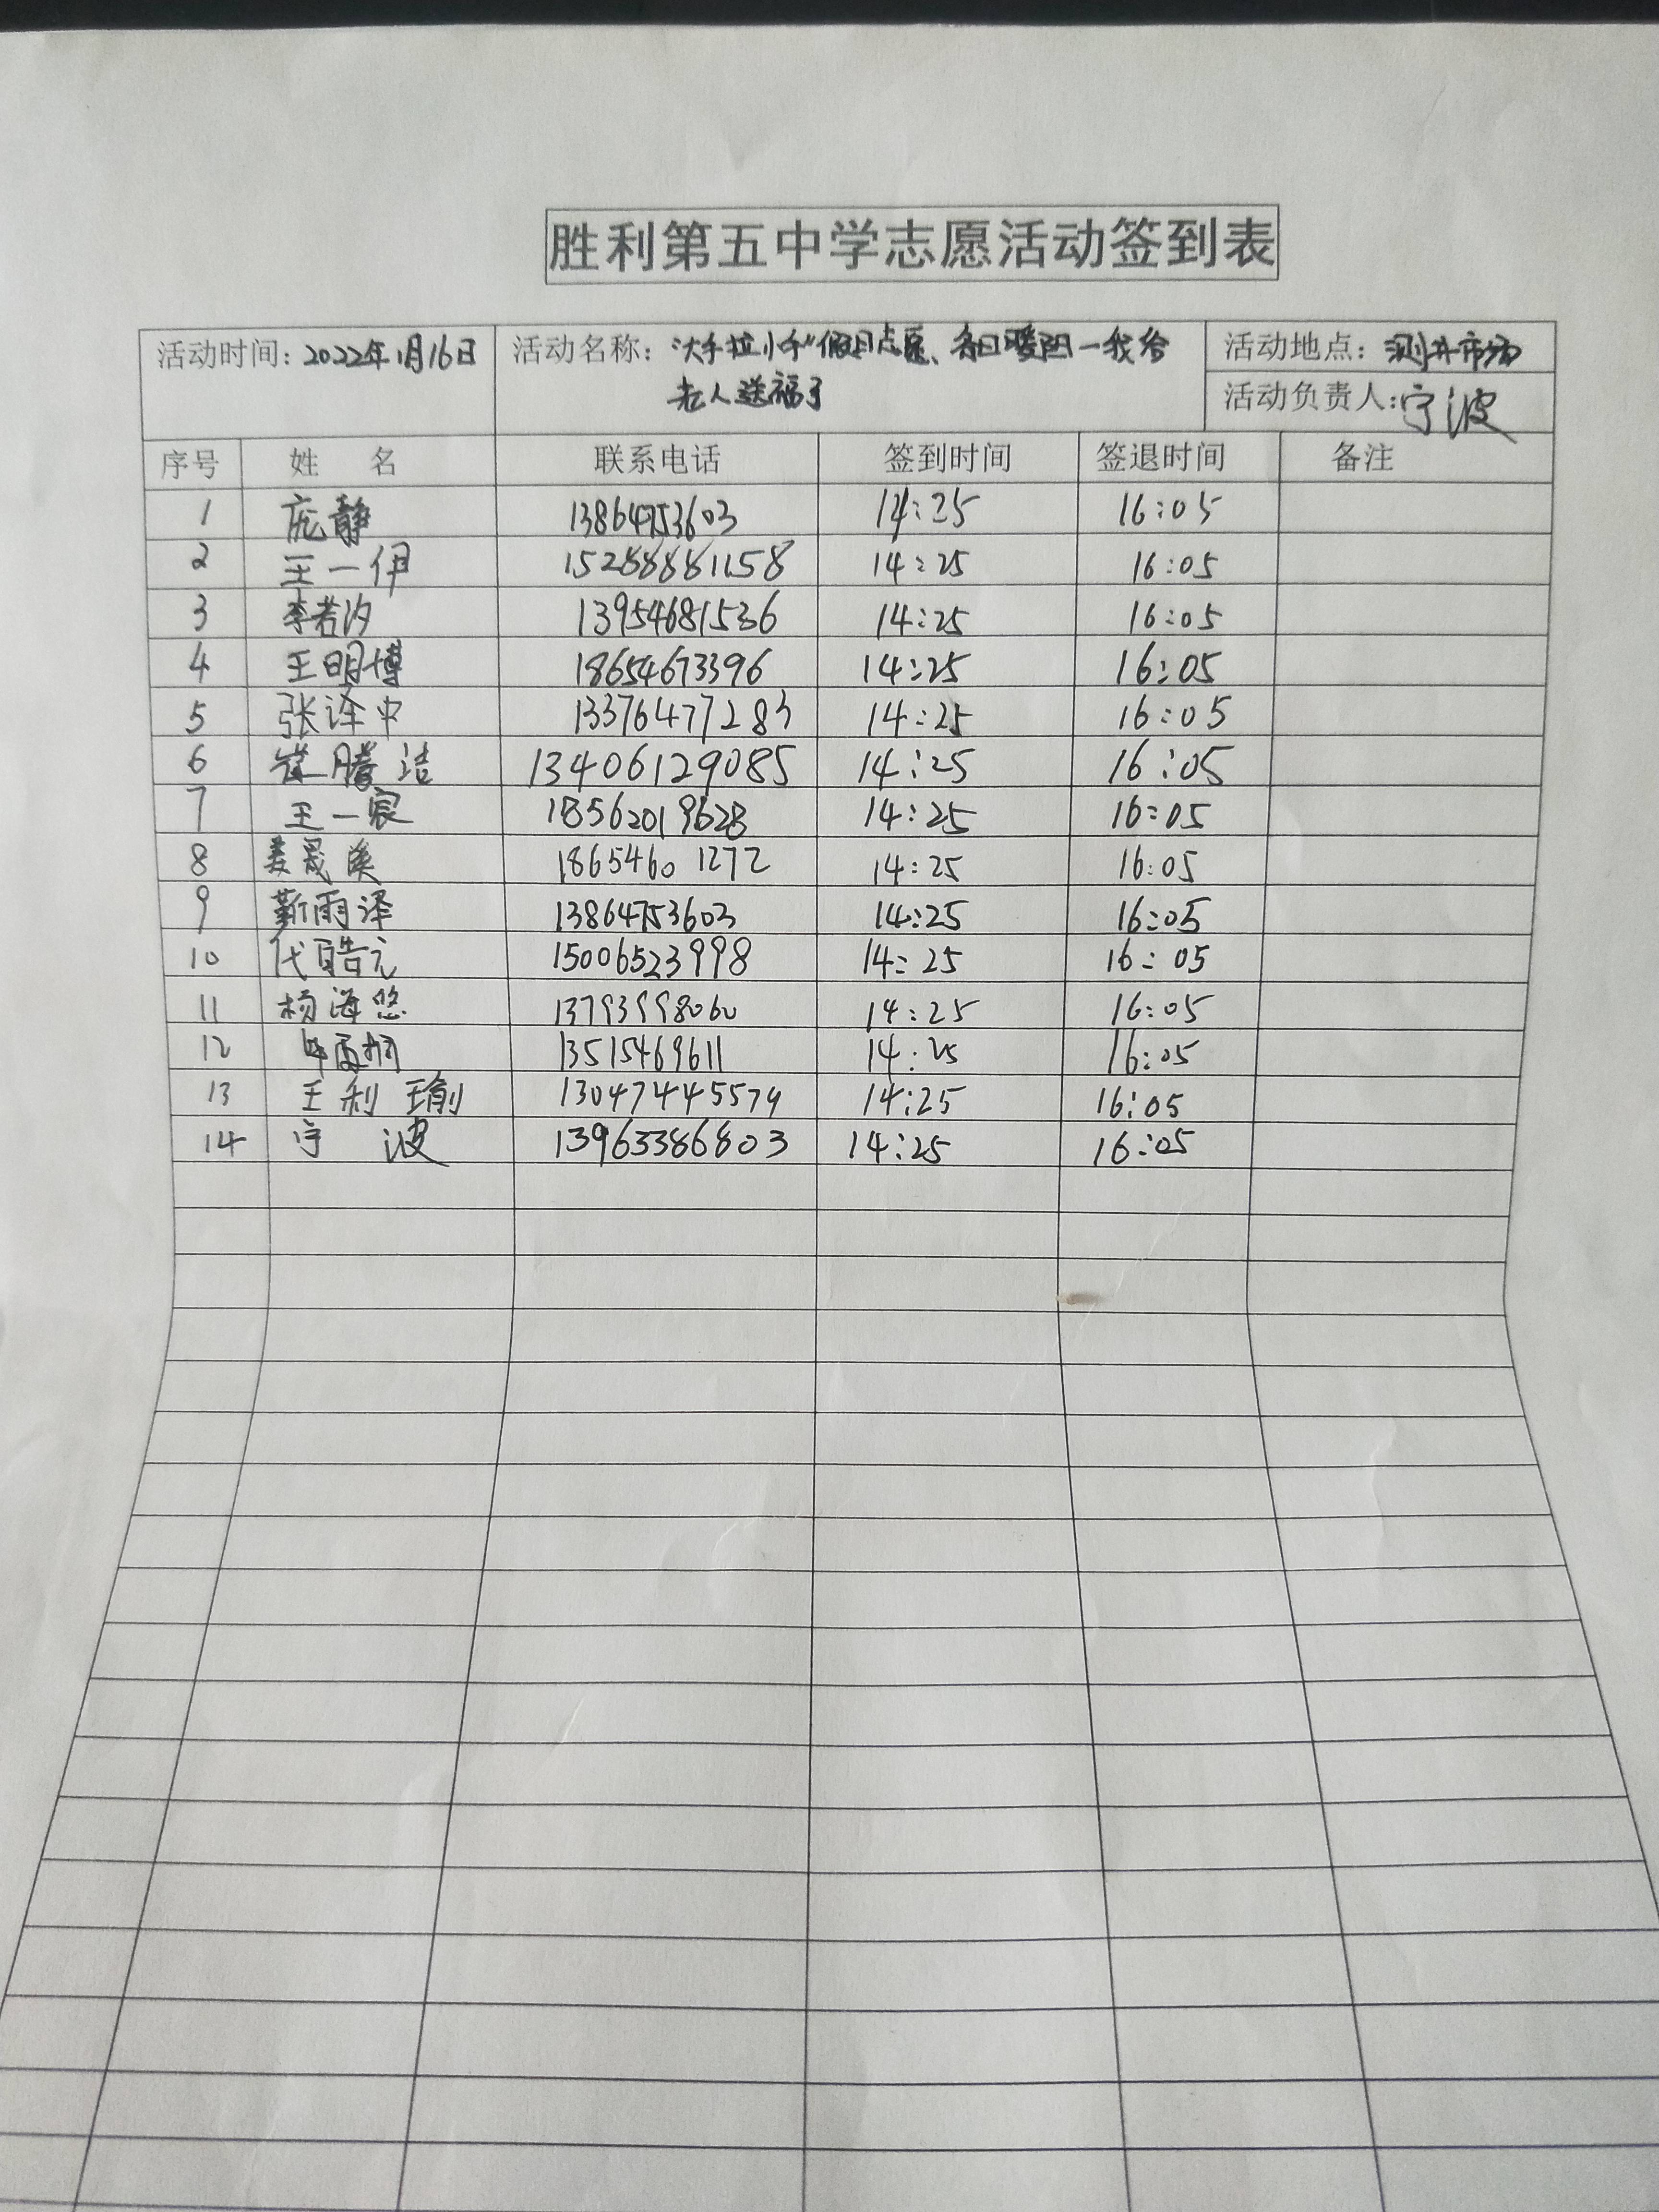 胜利第五中学志愿活动签到表
活动时间：2022年1月16日 活动名称："大手拉小手"假日志愿、冬日暖阳一我给 活动地点：测井市场
老人送福了 活动负责人：宁波
序号 姓 名 联系电话 签到时间 签退时间 备注
1 庞静 13864753603 14:25 16:05
2 王一伊 15288881158 14:25 16:05
3 李若汐 13954681536 14:25 16:05
4 王明博 18654673396 14:25 16:05
5 张译中 13376477283 14:25 16:05
6 腾洁 13406129085 14:25 16:05
7 王一宸 18562019628 14:25 16:05
8 姜晟溪 18654601272 14:25 16:05
9 靳雨泽 13864753603 14:25 16:05
10 代皓元 15006523998 14:25 16:05
11 杨海悠 13793998060 14:25 16:05
12 13515469611 14:25 16:05
13 王利 13047445579 14:25 16:05
14 宁 波 13963386803 14:25 16:05